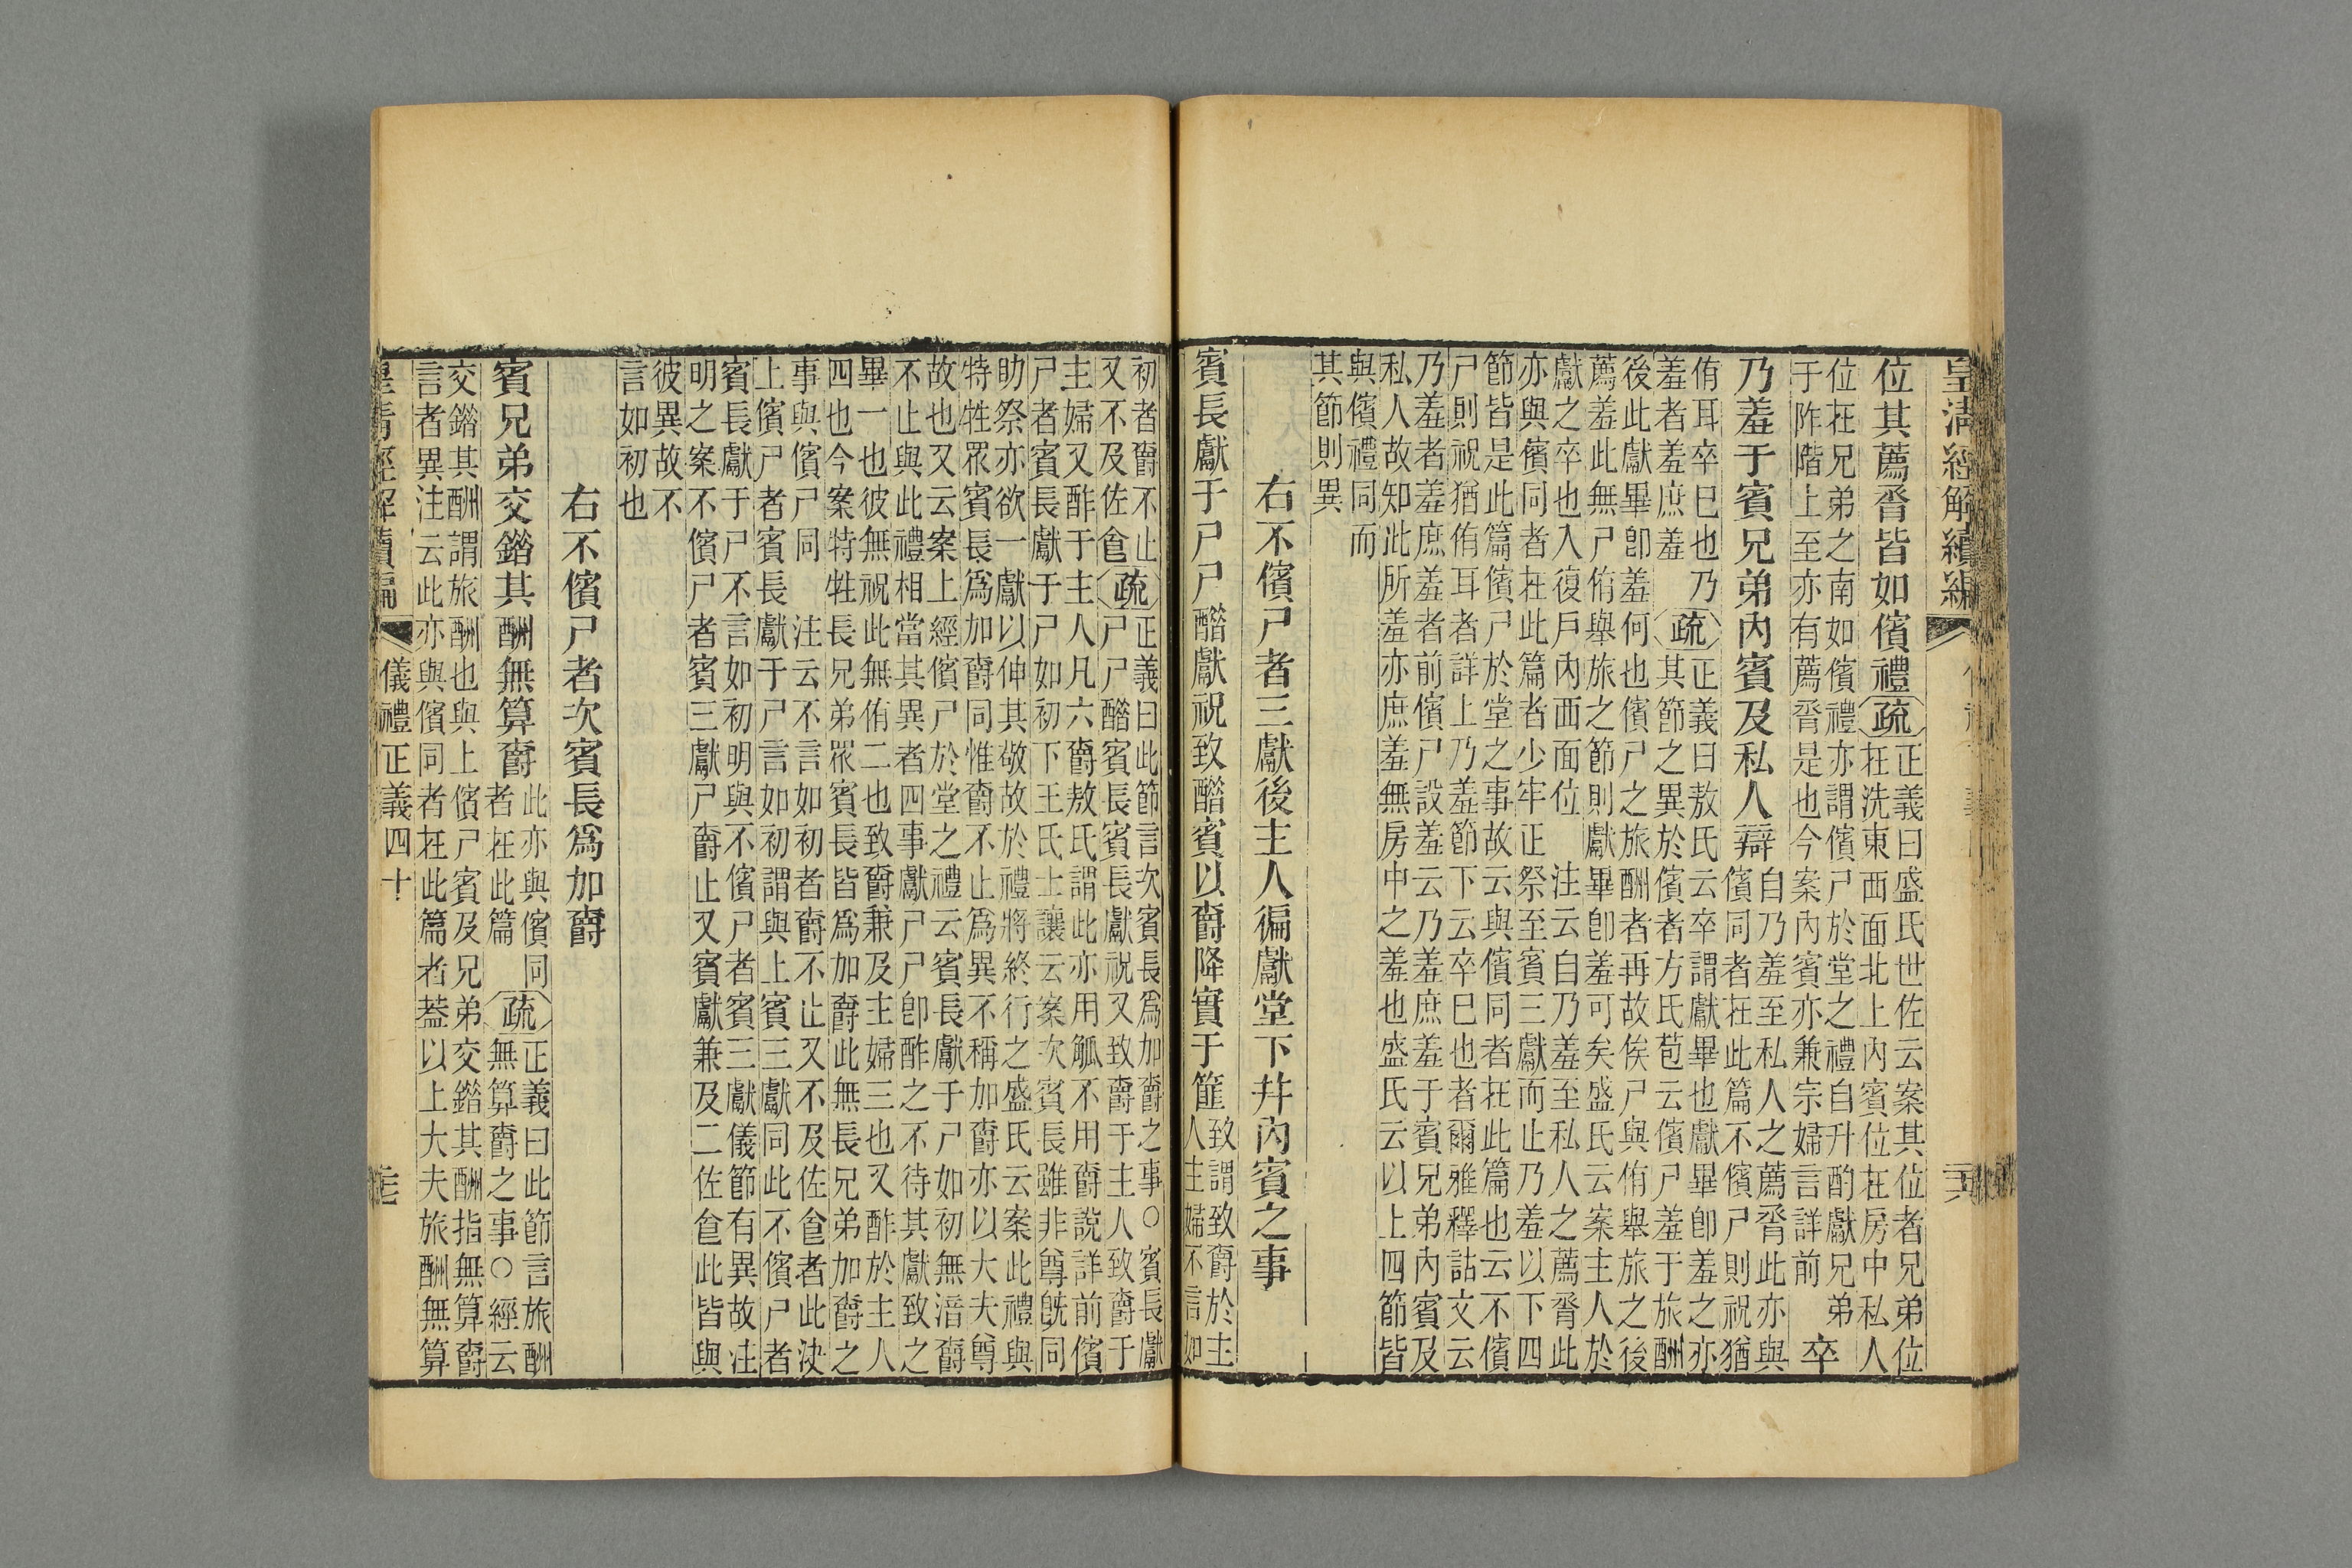 皇清經解續編
位其薦脀皆如儐禮疏正義曰盛氏世佐云案其位者兄弟位
在洗東西面北上內賓位在房中私人
位在兄弟之南如儐禮亦謂儐尸於堂之禮自升酌獻兄弟
于阼階上至亦有薦脀是也今案內賓亦兼宗婦言詳前 卒
乃羞于賓兄弟內賓及私人辯自乃羞至私人之薦脀此亦與
儐同者在此篇不儐尸則祝猶
侑耳卒已也乃疏正義曰敖氏云卒謂獻畢也獻畢卽羞之亦
羞者羞庶羞 其節之異於儐者方氏苞云儐尸羞于旅酬
後此獻畢卽羞何也儐尸之旅酬者再故俟尸與侑舉旅之後
薦羞此無尸侑舉旅之節則獻畢卽羞可矣盛氏云案主人於
獻之卒也入復戶內面面位 注云自乃羞至私人之薦脀此
亦與儐同者在此篇者少牢正祭至賓三獻而止乃羞以下四
節皆是此篇儐尸於堂之事故云與儐同者在此篇也云不儐
尸則祝猶侑耳者詳上乃羞節下云卒已也者爾雅釋詁文云
乃羞者羞庶羞者前儐尸設羞云乃羞庶羞于賓兄弟內賓及
私人故知此所羞亦庶羞無房中之羞也盛氏云以上四節皆
與儐禮同而
其節則異
右不儐尸者三獻後主人徧獻堂下幷內賓之事
賓長獻于尸尸醋獻祝致醋賓以爵降實于篚致謂致爵於主
人主婦不言如
初者爵不止疏正義曰此節言次賓長爲加爵之事○賓長獻
又不及佐食 尸尸醋賓長賓長獻祝又致爵于主人致爵于
主婦又酢于主人凡六爵敖氏謂此亦用觚不用爵說詳前儐
尸者賓長獻于尸如初下王氏士讓云案次賓長雖非尊旣同
助祭亦欲一獻以伸其敬故於禮將終行之盛氏云案此禮與
特牲眾賓長爲加爵同惟爵不止爲異不稱加爵亦以大夫尊
故也又云案上經儐尸於堂之禮云賓長獻于尸如初無湆爵
不止與此禮相當其異者四事獻尸尸卽酢之不待其獻致之
畢一也彼無祝此無侑二也致爵兼及主婦三也又酢於主人
四也今案特牲長兄弟眾賓長皆爲加爵此無長兄弟加爵之
事與儐尸同 注云不言如初者爵不止又不及佐食者此決
上儐尸者賓長獻于尸言如初謂與上賓三獻同此不儐尸者
賓長獻于尸不言如初明與不儐尸者賓三獻儀節有異故注
明之案不儐尸者賓三獻尸爵止又賓獻兼及二佐食此皆與
彼異故不
言如初也
右不儐尸者次賓長爲加爵
賓兄弟交錯其酬無算爵此亦與儐同疏正義曰此節言旅酬
者在此篇 無算爵之事○經云
交錯其酬謂旅酬也與上儐尸賓及兄弟交錯其酬指無算爵
言者異注云此亦與儐同者在此篇者葢以上大夫旅酬無算
皇清經解續編 儀禮正義四十